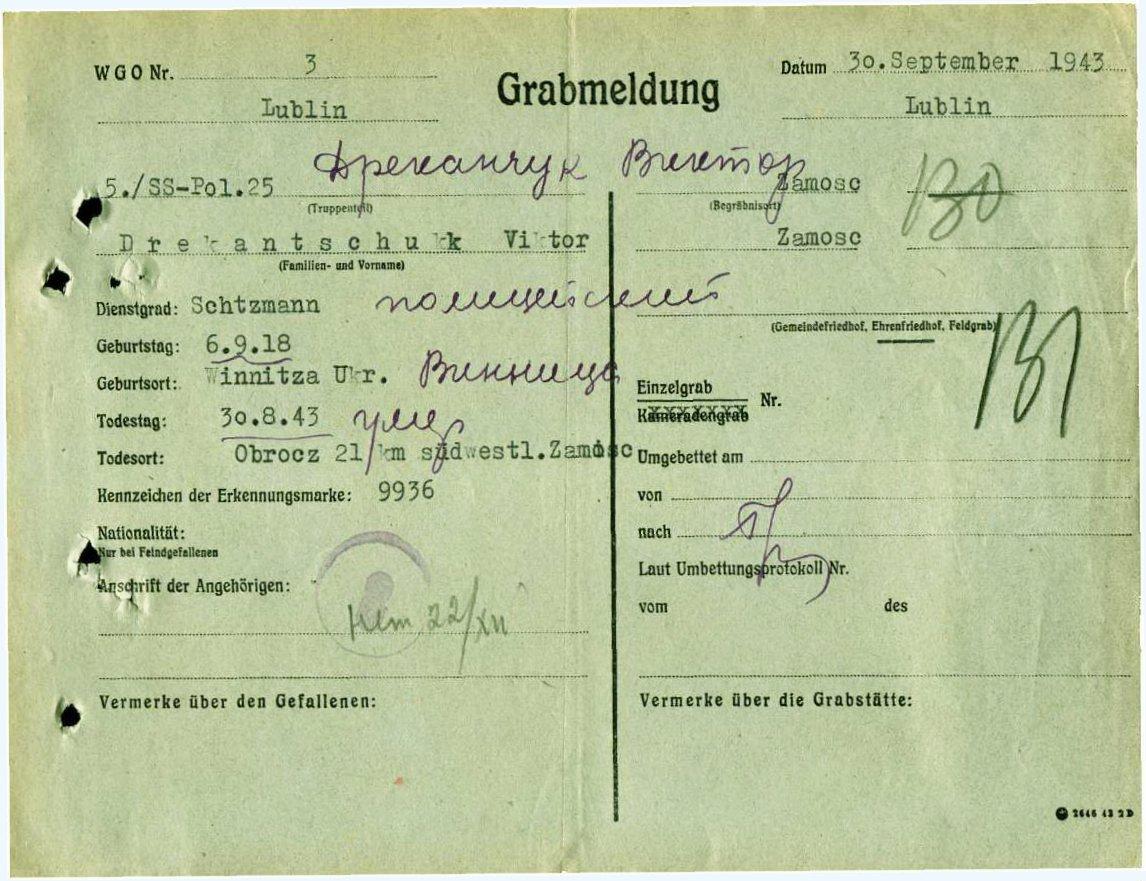 WGO Nr. 3
Lublin
Grabmeldung
Datum 30.September 1943
Lublin
Дреканчук Виктор
5./SS-Pol.25
(Truppenteil)
Drekantschukk Viktor
(Familien- und Vorname)
Dienstgrad: Schtzmann полицейский
Geburtstag: 6.9.18
Geburtsort: Winnitza Ukr. Винница
Todestag: 30.8.43
Todesort: Obrocz 21 km südwestl.Zamosc
Kennzeichen der Erkennungsmarke: 9936
Nationalität:
Nur bei Feindgefallenen
Anschrift der Angehörigen:
22/XII
Vermerke über den Gefallenen:
Zamosc 130
(Begräbnisort)
Zamosc
(Gemeindefriedhof, Ehrenfriedhof, Feldgrab)
Einzelgrab
Kameradengrab
Nr.
131
Umgebettet am
von
nach
Laut Umbettungsprotokoll Nr.
vom des
Vermerke über die Grabstätte:
2646 43 2D